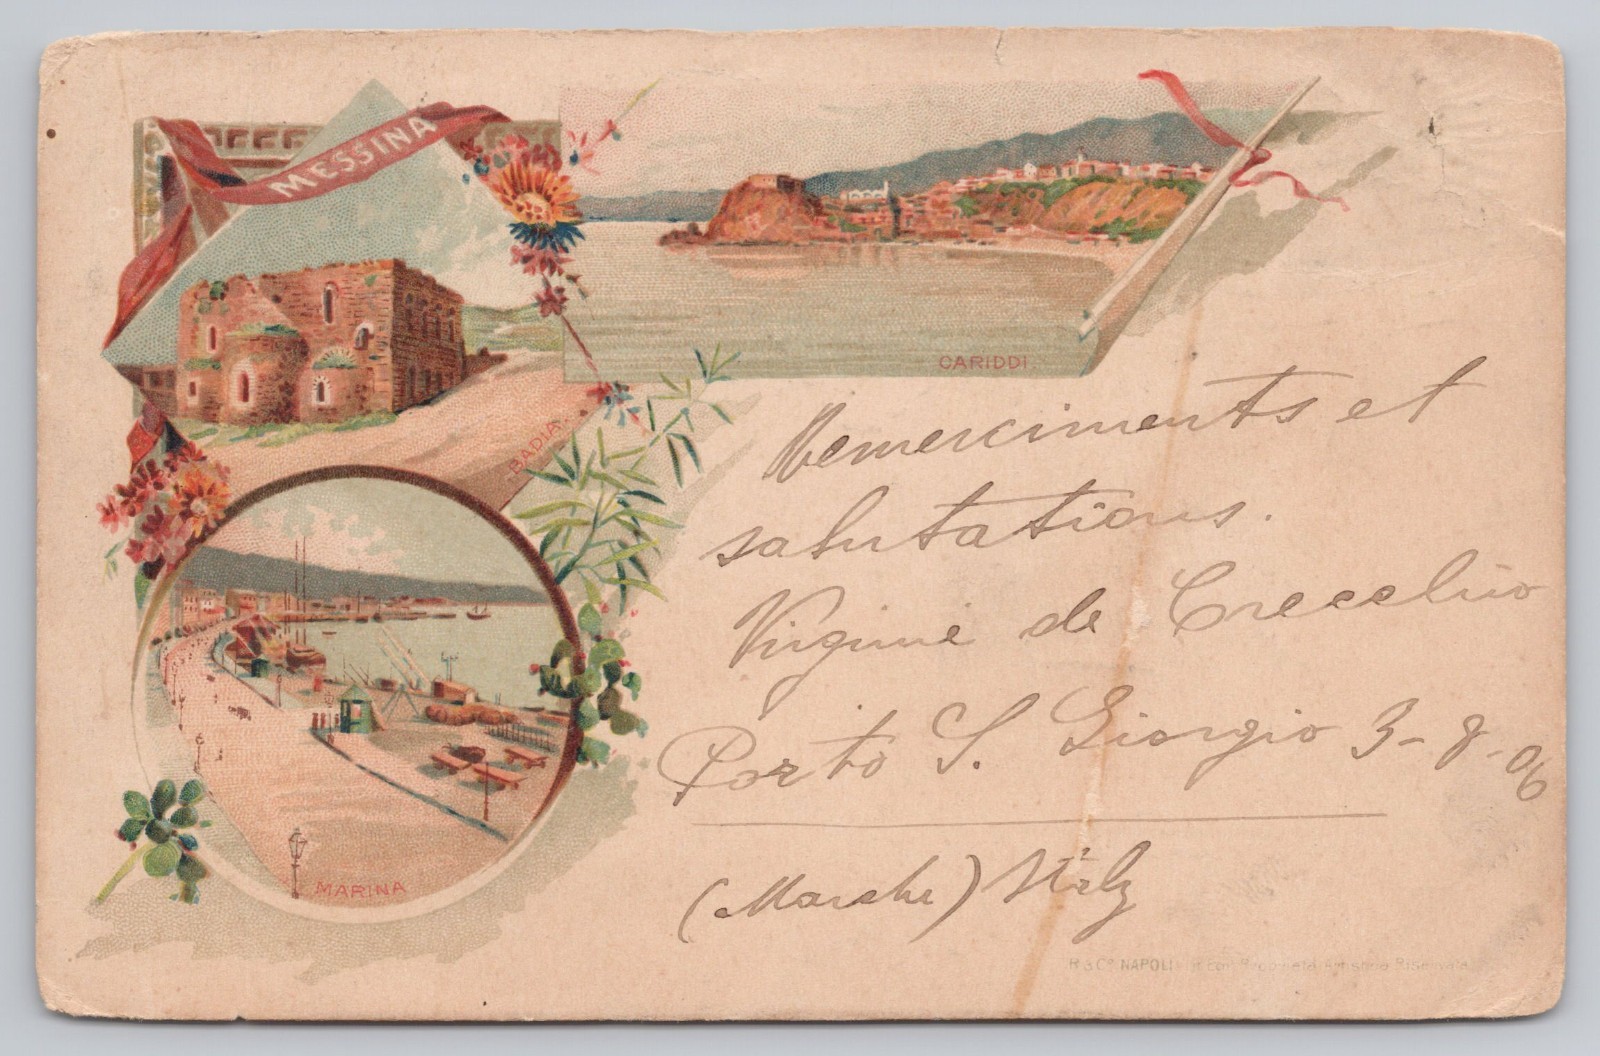 MESSINA
CARIDDI.
BADIA.
MARINA
Remerciments et
salutations.
Virginie de Crecchio
Porto S. Giorgio 3-8-06
(Marche) Italy
R & Cº NAPOLI Proprietà Artistica Riservata